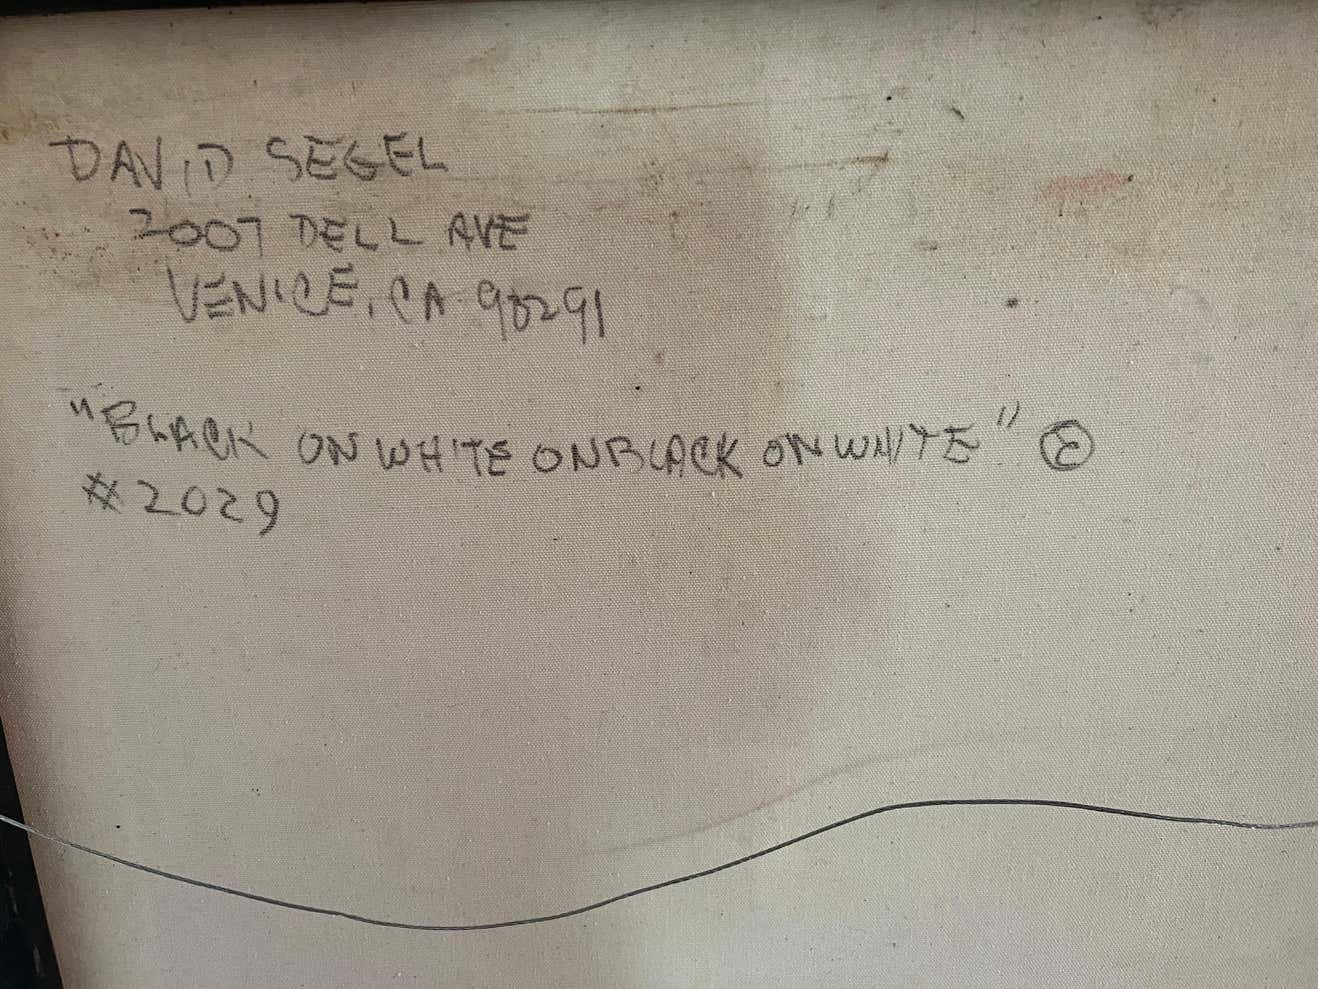 DAVID SEGEL
2007 DELL AVE
VENICE, CA 90291
"BLACK ON WHITE ON BLACK ON WHITE" ©
#2029